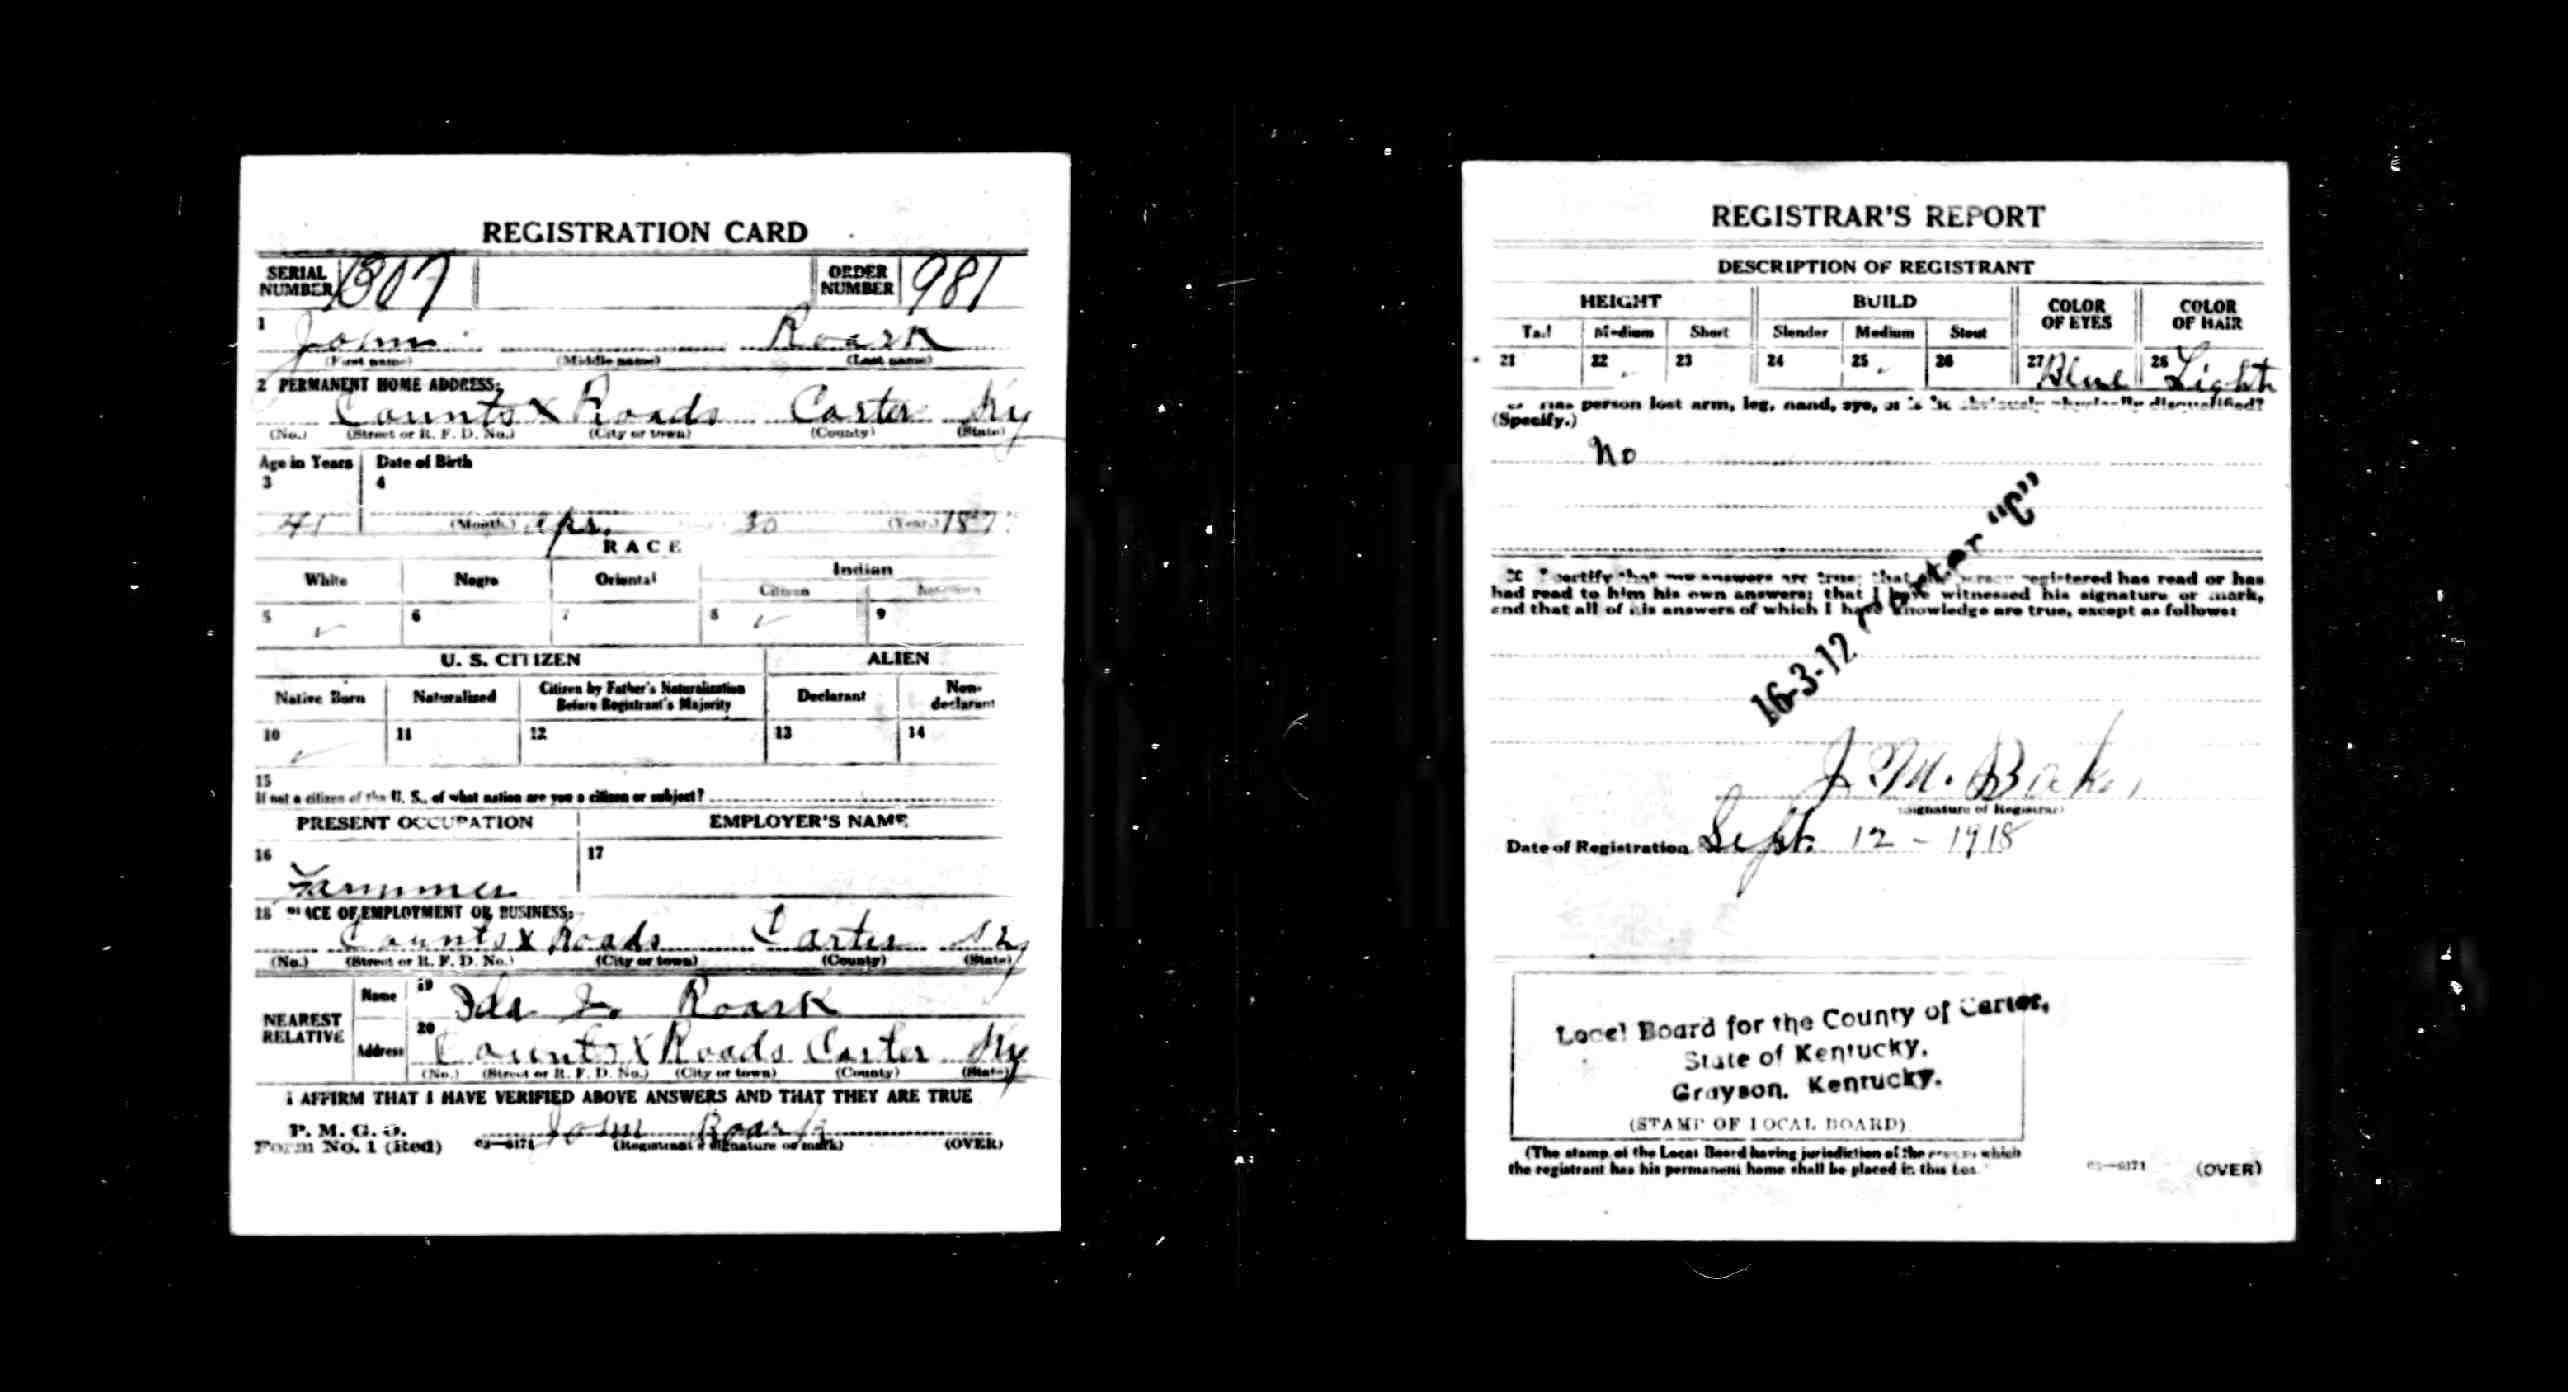 REGISTRATION CARD
SERIAL NUMBER 1307 ORDER NUMBER 981
1 John Roark
(First name) (Middle name) (Last name)
2 PERMANENT HOME ADDRESS:
Counts X Roads Carter Ky
(No.) (Street or R. F. D. No.) (City or town) (County) (State)
Age in Years Date of Birth
3 4
41 (Month.) Apr. 30 (Year.)
RACE
White Negro Oriental Indian
Citizen
5 ✓ 6 7 8 ✓ 9
U. S. CITIZEN ALIEN
Native Born Naturalized Citizen by Father's Naturalization Before Registrant's Majority Declarant Non-declarant
10 ✓ 11 12 13 14
15
If not a citizen of the U. S., of what nation are you a citizen or subject?
PRESENT OCCUPATION EMPLOYER'S NAME
16 17
Farmmer
18 PLACE OF EMPLOYMENT OR BUSINESS:
Counts X Roads Carter Ky
(No.) (Street or R. F. D. No.) (City or town) (County) (State)
NEAREST RELATIVE Name 19 Ida Roark
Address 20 Counts X Roads Carter Ky
(No.) (Street or R. F. D. No.) (City or town) (County) (State)
I AFFIRM THAT I HAVE VERIFIED ABOVE ANSWERS AND THAT THEY ARE TRUE
P. M. G. O.
Form No. 1 (Red) 03—6171 John Roark (Registrant's signature or mark) (OVER)
REGISTRAR'S REPORT
DESCRIPTION OF REGISTRANT
HEIGHT BUILD COLOR OF EYES COLOR OF HAIR
Tall Medium Short Slender Medium Stout
21 22 23 24 25 26 27 Blue 28 Light
person lost arm, leg, hand, eye, or is he obviously physically disqualified?
(Specify.)
No
I certify that my answers are true; that the person registered has read or has
had read to him his own answers; that I have witnessed his signature or mark,
and that all of his answers of which I have knowledge are true, except as follows:
16-3-12 "C"
J. M. Baker
(Signature of Registrar)
Date of Registration Sept. 12 - 1918
Local Board for the County of Carter,
State of Kentucky,
Grayson, Kentucky.
(STAMP OF LOCAL BOARD)
(The stamp of the Local Board having jurisdiction of the area in which
the registrant has his permanent home shall be placed in this box.)
03—6171 (OVER)